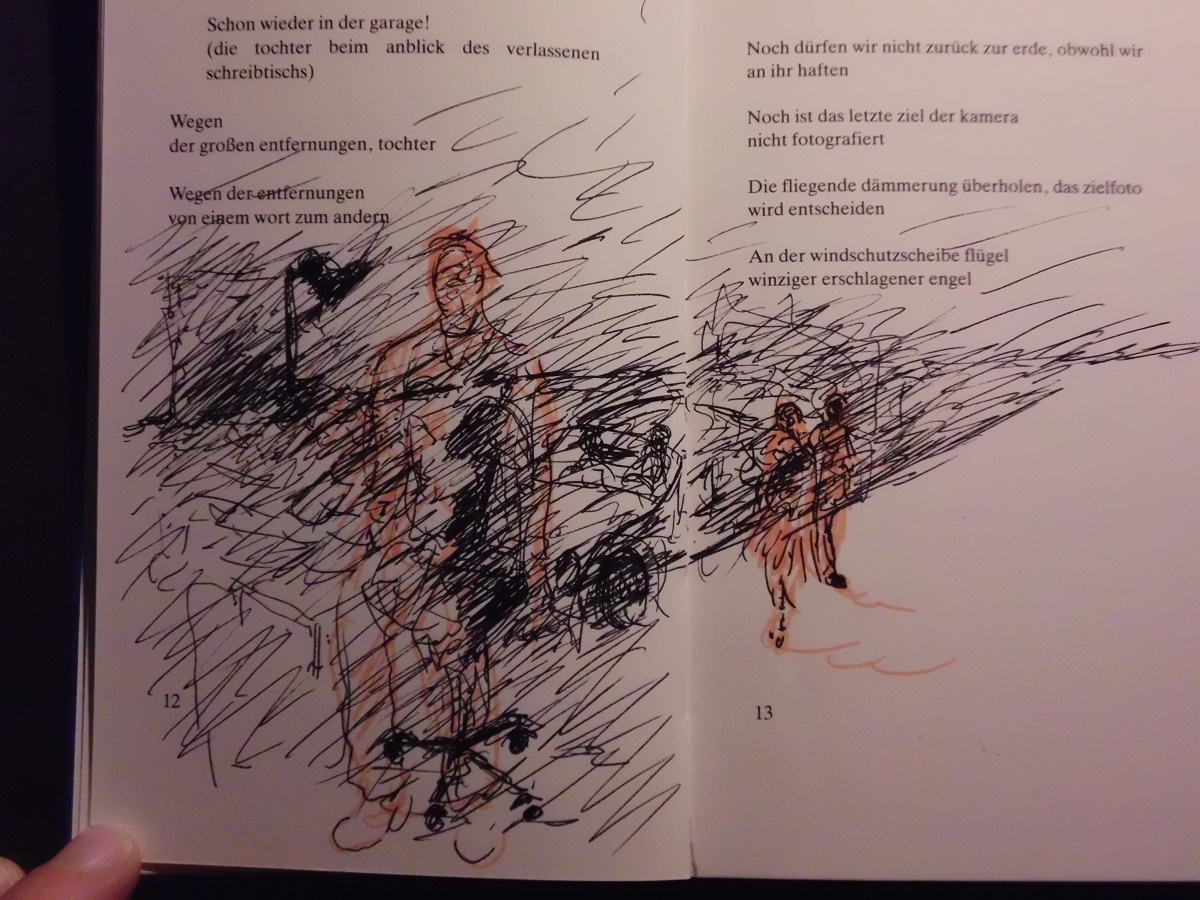 Schon wieder in der garage!
(die tochter beim anblick des verlassenen
schreibtischs)
Wegen
der großen entfernungen, tochter
Wegen der entfernungen
von einem wort zum andern
12
Noch dürfen wir nicht zurück zur erde, obwohl wir
an ihr haften
Noch ist das letzte ziel der kamera
nicht fotografiert
Die fliegende dämmerung überholen, das zielfoto
wird entscheiden
An der windschutzscheibe flügel
winziger erschlagener engel
13